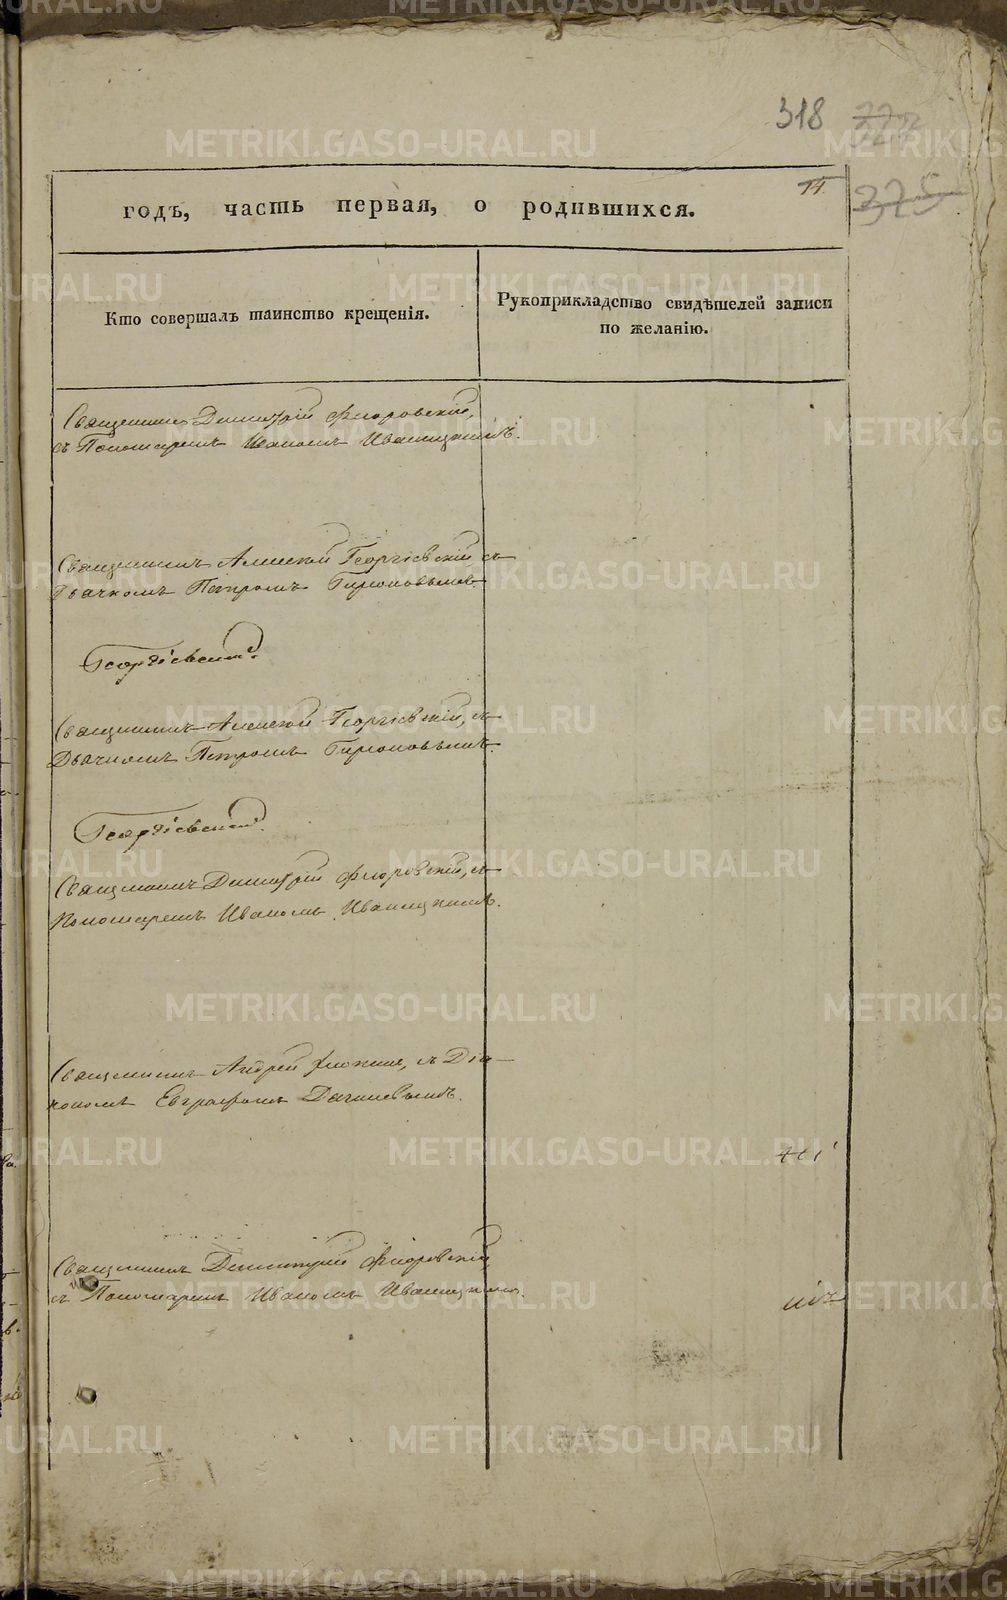 318
375
11.
годъ, часть первая, о родившихся.
Кто совершалъ таинство крещенія.
Рукоприкладство свидѣтелей записи
по желанію.
Священникъ Димитрій Флоровскій,
съ Пономаремъ Иваномъ Иваницкимъ.
Священникъ Алексѣй Георгіевскій съ
Дьячкомъ Петромъ
Георгіевскій.
Священникъ Алексѣй Георгіевскій, съ
Дьячкомъ Петромъ
Георгіевскій.
Священникъ Димитрій Флоровскій, съ
Пономаремъ Иваномъ Иваницкимъ.
Священникъ Андрей съ Діа-
кономъ Евграфомъ
Священникъ Димитрій Флоровскій,
съ Пономаремъ Иваномъ Иваницкимъ.
METRIKI.GASO-URAL.RU